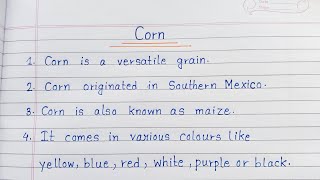 Corn
1. Corn is a versatile grain.
2. Corn originated in Southern Mexico.
3. Corn is also known as maize.
4. It comes in various colours like
yellow, blue, red, white, purple or black.